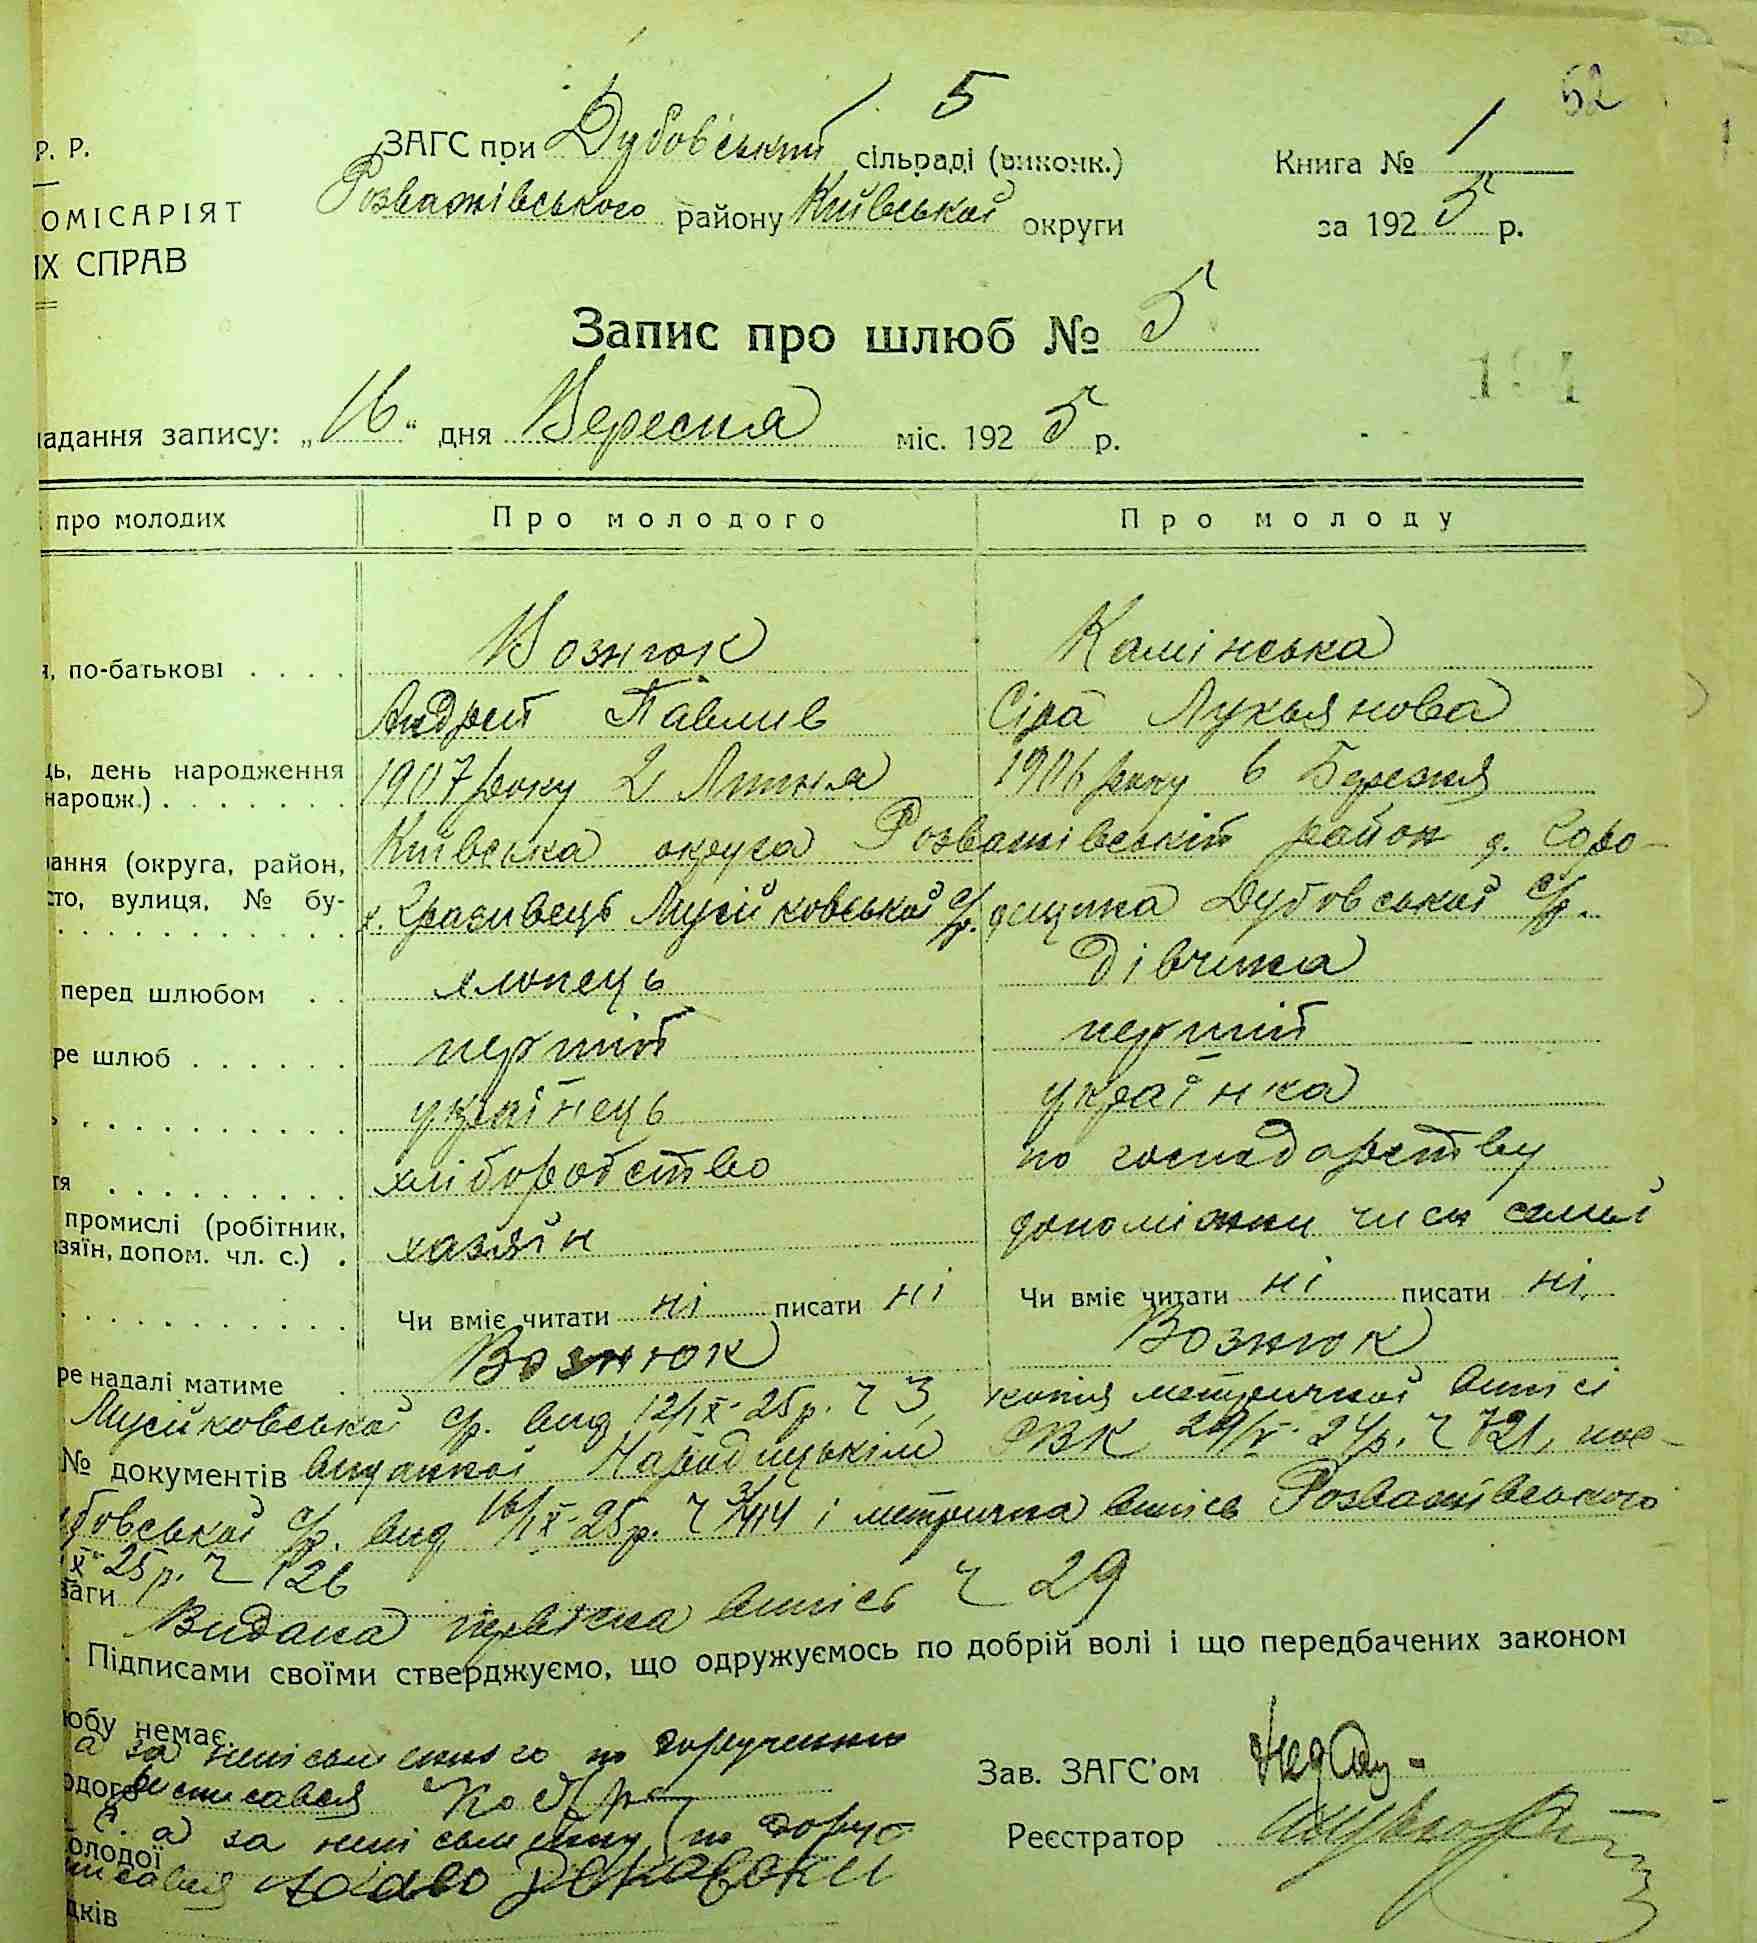 52
5
Р. Р.
ЗАГС при Дубовській сільраді (виконк.)
Книга № 1
ОМІСАРІЯТ
Розважівського району Київської округи
за 1925 р.
ІХ СПРАВ
Запис про шлюб № 5
ладання запису: „16“ дня Вересня міс. 1925 р.
про молодих
Про молодого
Про молоду
по-батькові
Вознюк
Камінська
Андрей Павлив
Лукьянова
ь, день народження
народж.)
1907 року 2 Липня
1906 року 6 Березня
ання (округа, район,
Київська округа Розважівській район д. Горо-
сто, вулиця, № бу-
Мусійковської с/р.
дищина Дубовської с/р.
перед шлюбом
хлопець
дівчина
ре шлюб
першій
першій
українець
українка
тя
хліборобство
по господарству
промислі (робітник,
зяїн, допом. чл. с.)
хазяїн
допоміжни член семьї
Чи вміє читати ні писати ні
Чи вміє читати ні писати ні
ре надалі матиме
Вознюк
Вознюк
Мусійковської с/р. від 12/ІХ-25р. Ч 3, копія метричної виписі
№ документів виданної Народицьким РВК 29/V-24р. Ч 721,
бовської с/р. від 16/ІХ-25р. Ч і метрична випись Розважівського
ІХ-25р. Ч 126
ваги
Видана випись Ч 29
Підписами своїми стверджуємо, що одружуємось по добрій волі і що передбачених законом
юбу немає.
а за неписьменного по дорученню
одого
росписався
Зав. ЗАГС'ом
а за неписьменну по дору-
олодої
писався
Реєстратор
дків